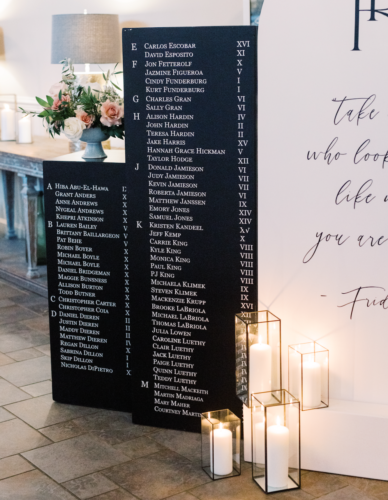 A Hiba Abu-El-Hawa IX
Grant Anders X
Anne Andrews X
Nygeal Andrews X
Kishphe Atkinson
B Lauren Bailey V
Brittany Baillargeon V
Pat Behe V
Robin Boyer X
Michael Boyle X
Michael Boyle X
Daniel Bridgeman X
Maggie Buniness X
Allison Burton
Todd Butner
C Christopher Carter
Christopher Coia X
D Daniel Dieren
Justin Dieren
Maddy Dieren
Matthew Dieren
Regan Dillon
Sabrina Dillon
Skip Dillon I
Nicholas DiPietro X
E Carlos Escobar XVI
David Esposito XI
F Jon Fetterolf X
Jazmine Figueroa V
Cindy Funderburg I
Kurt Funderburg I
G Charles Gran VI
Sally Gran VI
H Alison Hardin IV
John Hardin II
Teresa Hardin II
Jake Harris XV
Hannah Grace Hickman V
Taylor Hodge XII
J Donald Jemison VI
Judy Jemison VI
Kevin Jemison VI
Roberta Jemison VI
Matthew Janssen XIV
Emory Jones XIV
Samuel Jones XIV
K Kristen Kandeel XV
Jeff Kemp V
Carrie King VIII
Kyle King VIII
Monica King VIII
Paul King VIII
PJ King VIII
Michaela Klimek VIII
Steven Klimek VIII
Mackenzie Krupp IX
L Brooke LaBriola XVI
Michael LaBriola
Thomas LaBriola
Julia Lowen
Caroline Luethy
Clair Luethy
Jack Luethy
Paige Luethy
Quinn Luethy
Teddy Luethy
M Mitchell Mackeith
Martin Madriaga
Mary Maher
Courtney Martin
take
who look
like
you are